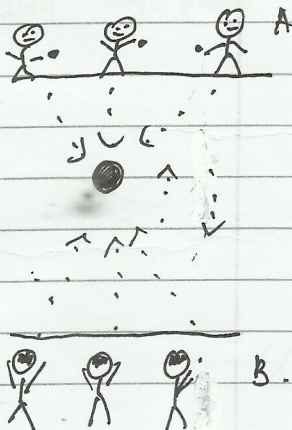 A
B.